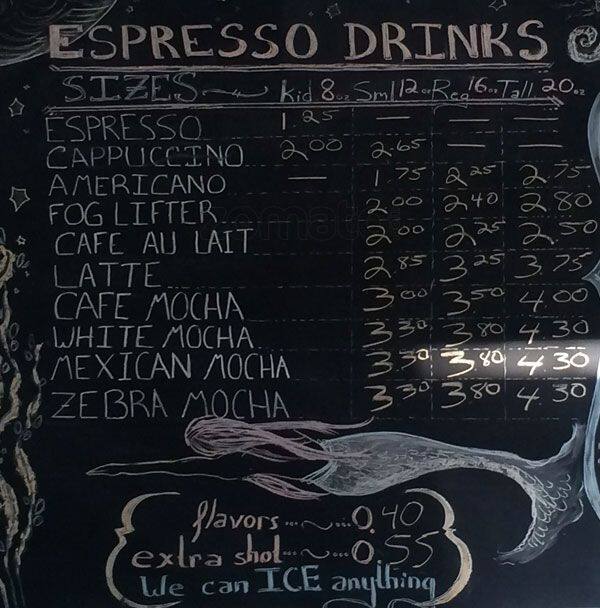 ESPRESSO DRINKS
SIZES Kid 8oz Sml 12oz Reg 16oz Tall 20oz
ESPRESSO 1.25 — — —
CAPPUCCINO 2.00 2.65 — —
AMERICANO — 1.75 2.25 2.75
FOG LIFTER 2.00 2.40 2.80
CAFE AU LAIT 2.00 2.25 2.50
LATTE 2.85 3.25 3.75
CAFE MOCHA 3.00 3.50 4.00
WHITE MOCHA 3.30 3.80 4.30
MEXICAN MOCHA 3.30 3.80 4.30
ZEBRA MOCHA 3.30 3.80 4.30
flavors...~...0.40
extra shot...~...0.55
We can ICE anything